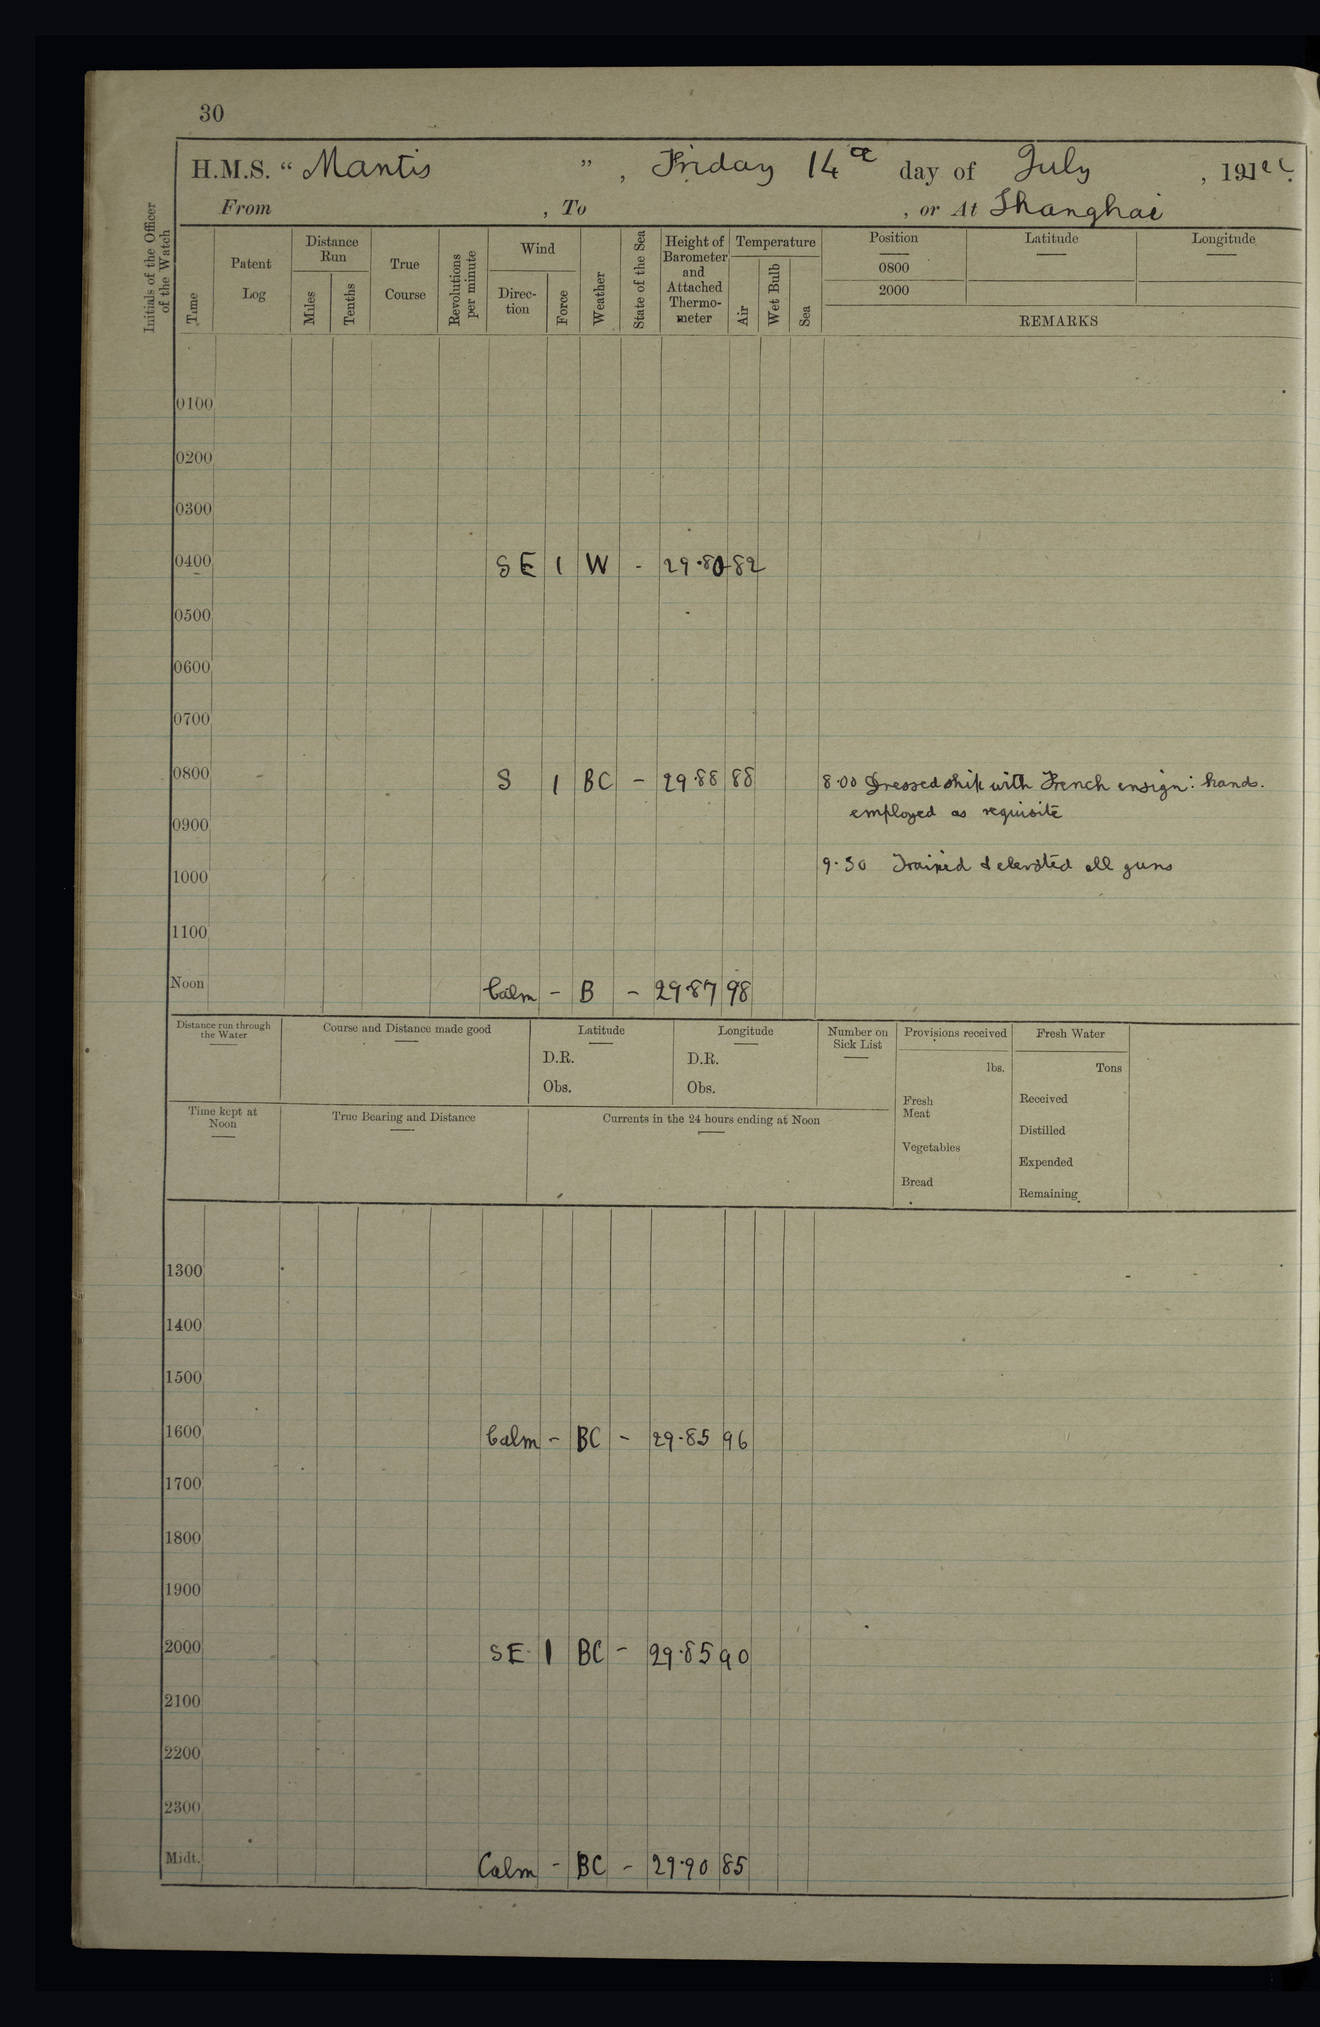 30
H.M.S. “ Mantis ” , Friday 14th day of July , 191
From , To , or At Shanghai
Initials of the Officer of the Watch
Time
Patent Log
Distance Run
Miles
Tenths
True Course
Revolutions per minute
Wind
Direc- tion
Force
Weather
State of the Sea
Height of Barometer and Attached Thermo- meter
Temperature
Air
Wet Bulb
Sea
Position
0800
2000
Latitude
Longitude
REMARKS
0100
0200
0300
0400 SE 1 W - 29·80 82
0500
0600
0700
0800 S 1 BC - 29·88 88 8·00 Dressed ship with French ensign: hands.
employed as requisite
0900
9·30 Trained & elevated all guns
1000
1100
Noon Calm - B - 29·87 98
Distance run through the Water
Course and Distance made good
Latitude
D.R.
Obs.
Longitude
D.R.
Obs.
Number on Sick List
Provisions received
lbs.
Fresh Meat
Vegetables
Bread
Fresh Water
Tons
Received
Distilled
Expended
Remaining
Time kept at Noon
True Bearing and Distance
Currents in the 24 hours ending at Noon
1300
1400
1500
1600 Calm - BC - 29·85 96
1700
1800
1900
2000 SE 1 BC - 29·85 90
2100
2200
2300
Midt. Calm - BC - 29·90 85